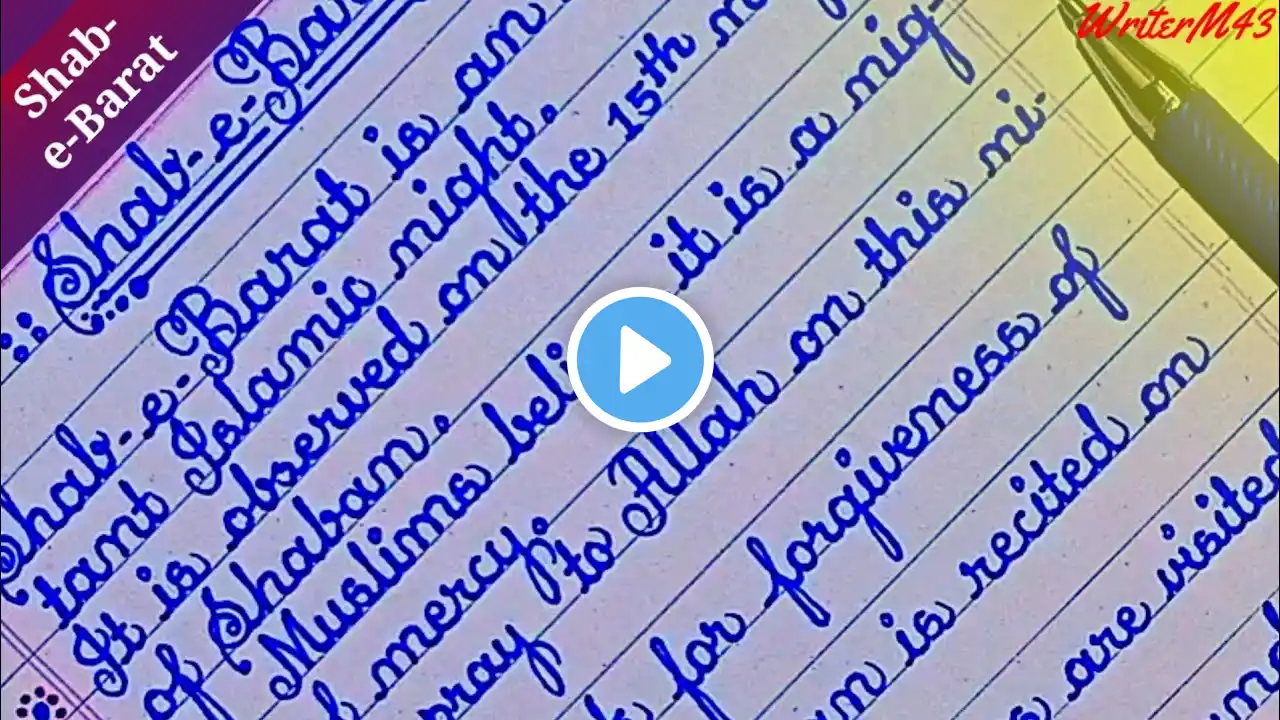 Shab-
e-Barat
WriterM43
Shab-e-Bar
Shab-e-Barat is an
tant Islamic night.
It is observed on the 15th
of Shaban.
Muslims beli it is a nig-
mercy.
pray to Allah on this ni-
for forgiveness of
is recited on
are visited